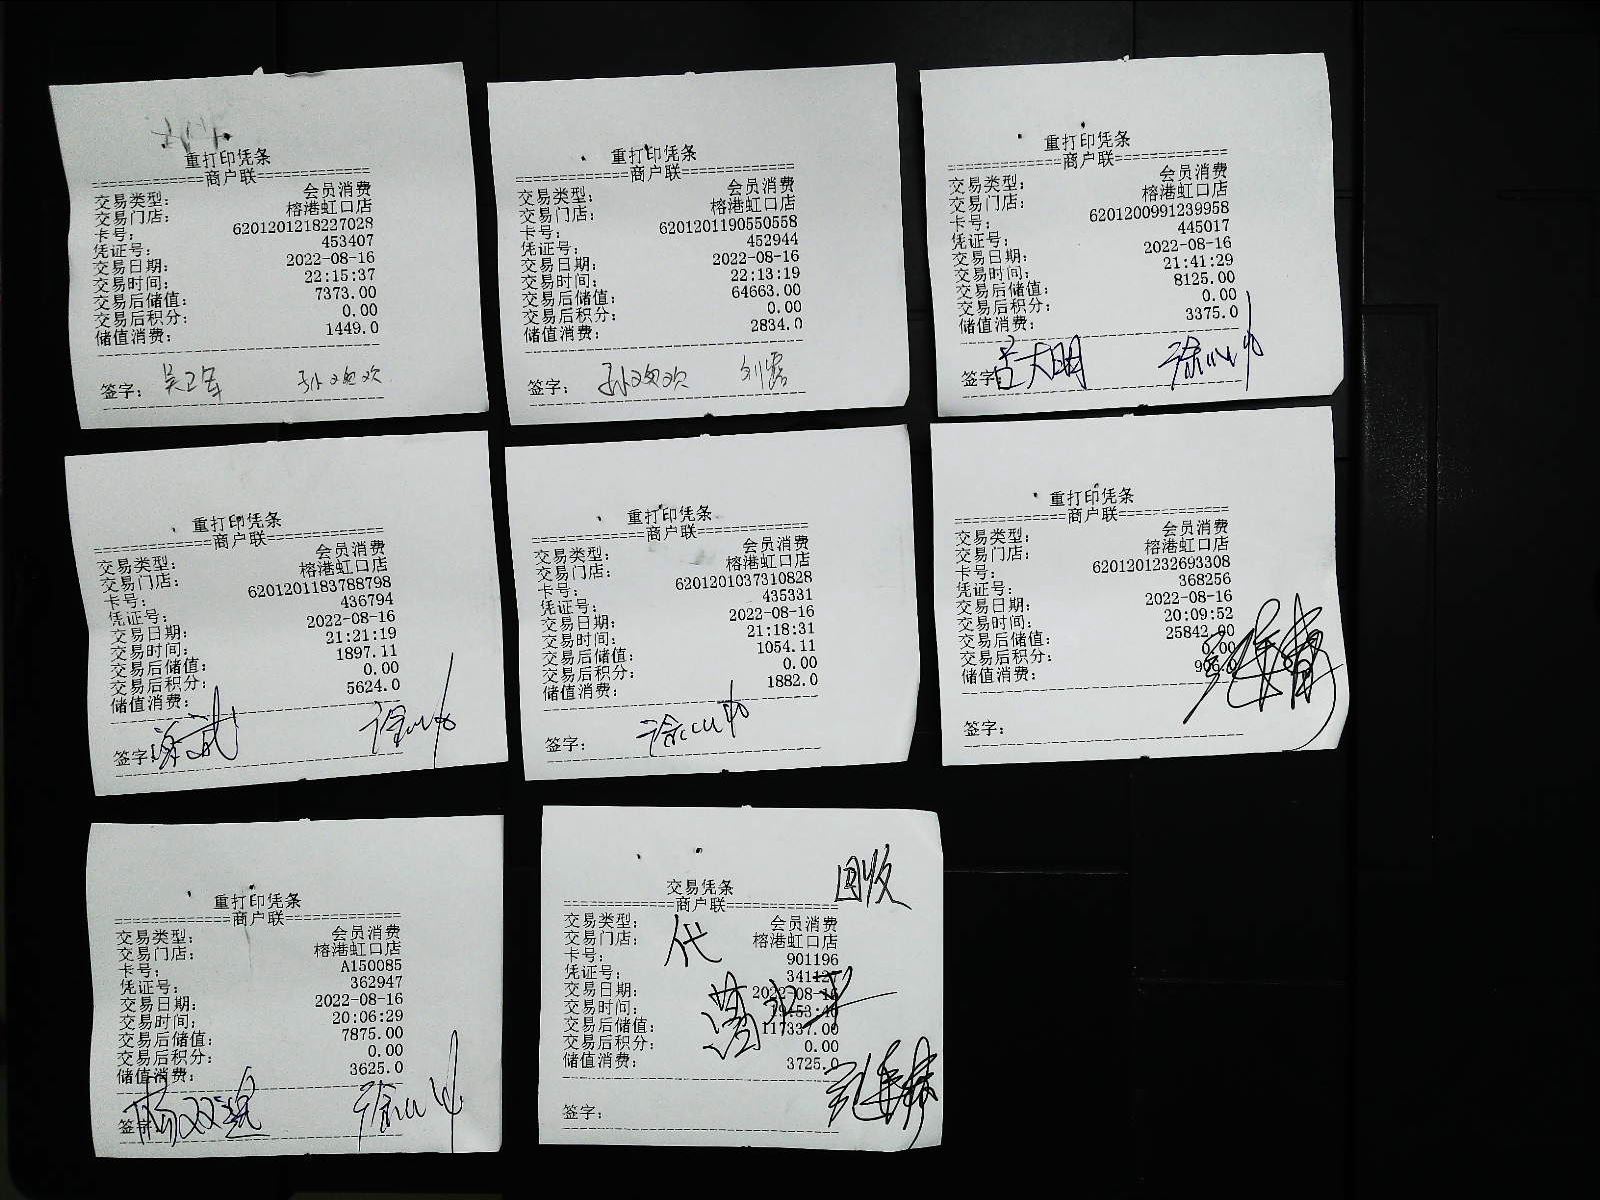 重打印凭条
=============商户联=============
交易类型: 会员消费
交易门店: 榕港虹口店
卡号: 6201201218227028
凭证号: 453407
交易日期: 2022-08-16
交易时间: 22:15:37
交易后储值: 7373.00
交易后积分: 0.00
储值消费: 1449.0
签字: 吴卫军 孙欢欢
重打印凭条
=============商户联=============
交易类型: 会员消费
交易门店: 榕港虹口店
卡号: 6201201190550558
凭证号: 452944
交易日期: 2022-08-16
交易时间: 22:13:19
交易后储值: 64663.00
交易后积分: 0.00
储值消费: 2834.0
签字: 孙欢欢 刘露
重打印凭条
=============商户联=============
交易类型: 会员消费
交易门店: 榕港虹口店
卡号: 6201200991239958
凭证号: 445017
交易日期: 2022-08-16
交易时间: 21:41:29
交易后储值: 8125.00
交易后积分: 0.00
储值消费: 3375.0
签字
重打印凭条
=============商户联=============
交易类型: 会员消费
交易门店: 榕港虹口店
卡号: 6201201183788798
凭证号: 436794
交易日期: 2022-08-16
交易时间: 21:21:19
交易后储值: 1897.11
交易后积分: 0.00
储值消费: 5624.0
签字: 谢斌
重打印凭条
=============商户联=============
交易类型: 会员消费
交易门店: 榕港虹口店
卡号: 6201201037310828
凭证号: 435331
交易日期: 2022-08-16
交易时间: 21:18:31
交易后储值: 1054.11
交易后积分: 0.00
储值消费: 1882.0
签字:
重打印凭条
=============商户联=============
交易类型: 会员消费
交易门店: 榕港虹口店
卡号: 6201201232693308
凭证号: 368256
交易日期: 2022-08-16
交易时间: 20:09:52
交易后储值: 25842.00
交易后积分: 0.00
储值消费:
签字:
重打印凭条
=============商户联=============
交易类型: 会员消费
交易门店: 榕港虹口店
卡号: A150085
凭证号: 362947
交易日期: 2022-08-16
交易时间: 20:06:29
交易后储值: 7875.00
交易后积分: 0.00
储值消费: 3625.0
签字
回收
交易凭条
=============商户联=============
交易类型: 会员消费
交易门店: 榕港虹口店
代
卡号: 901196
凭证号: 341127
交易日期: 2022-08-16
交易时间: 19:53:40
交易后储值: 117337.00
交易后积分: 0.00
储值消费: 3725.0
签字: